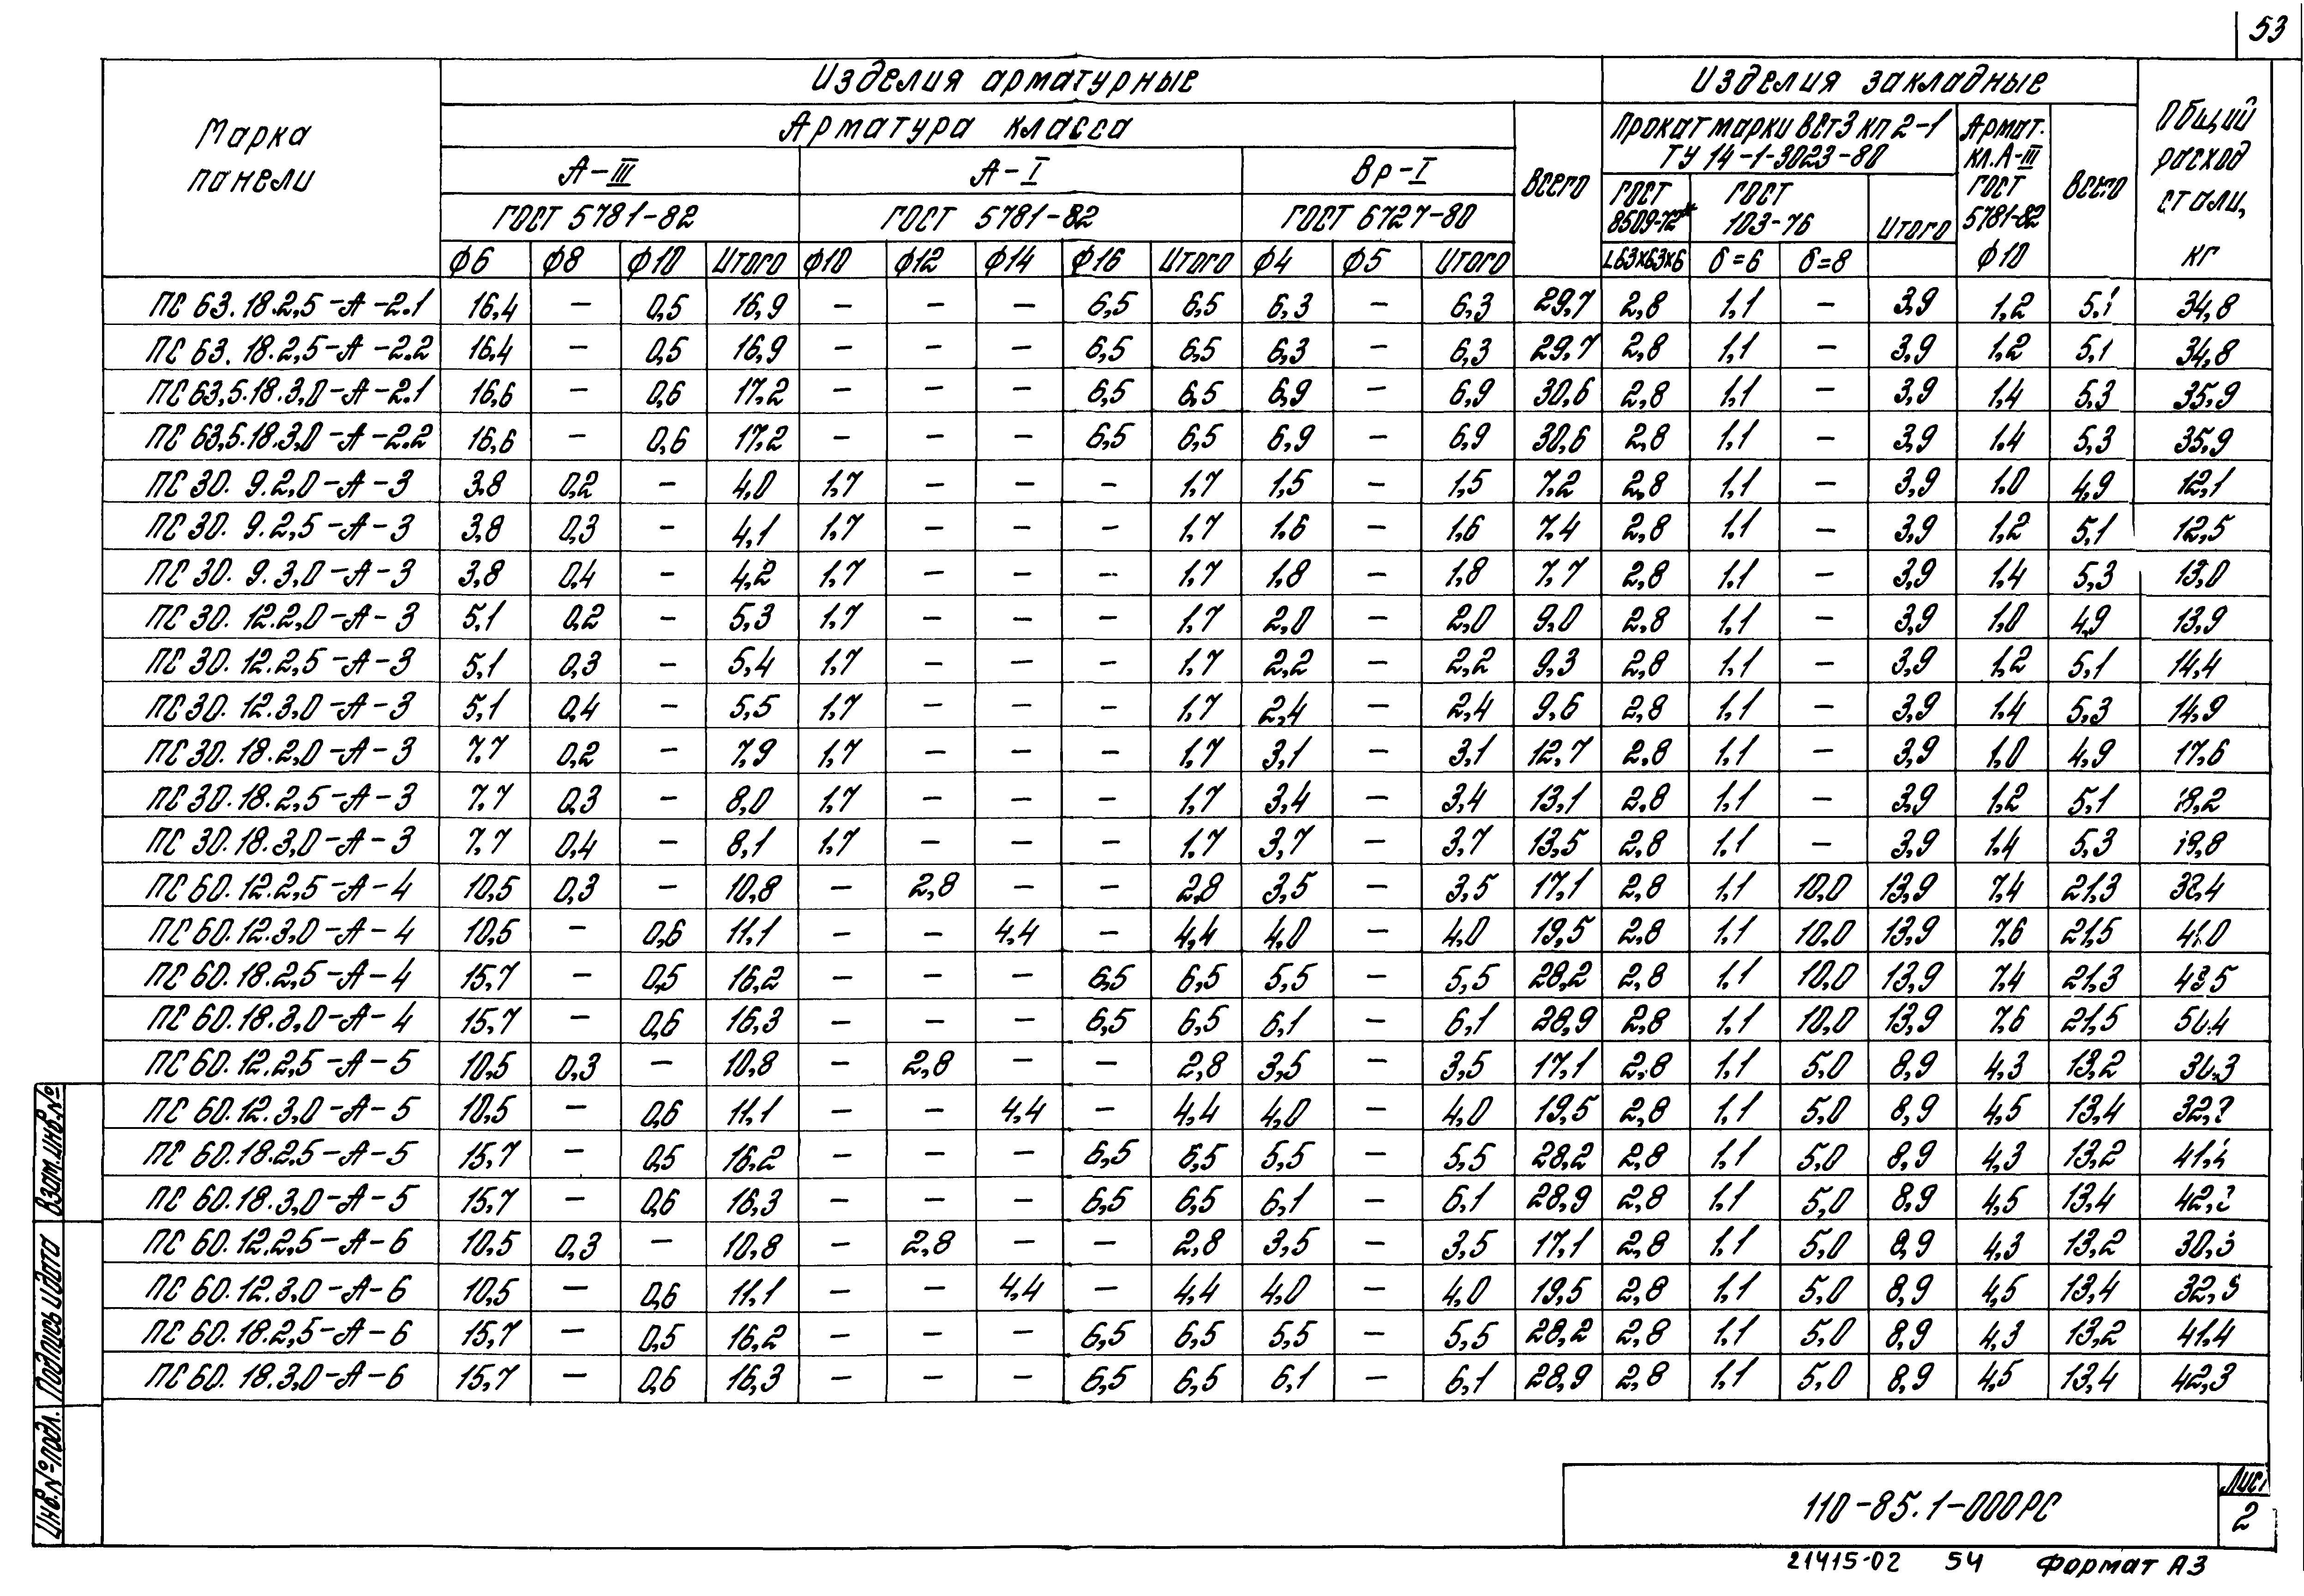 53
Марка панели
Изделия арматурные
Изделия закладные
Общий расход стали, кг
Арматура класса
Всего
Прокат марки ВСт3 кп 2-1 ТУ 14-1-3023-80
Армат. кл. А-III ГОСТ 5781-82 ϕ10
Всего
А-III
А-I
Вр-I
ГОСТ 5781-82
ГОСТ 5781-82
ГОСТ 6727-80
ГОСТ 8509-72*
ГОСТ 103-76
Итого
ϕ6 ϕ8 ϕ10 Итого ϕ10 ϕ12 ϕ14 ϕ16 Итого ϕ4 ϕ5 Итого L63x63x6 δ=6 δ=8
ПС 63.18.2,5-А-2.1 16,4 – 0,5 16,9 – – – 6,5 6,5 6,3 – 6,3 29,7 2,8 1,1 – 3,9 1,2 5,1 34,8
ПС 63.18.2,5-А-2.2 16,4 – 0,5 16,9 – – – 6,5 6,5 6,3 – 6,3 29,7 2,8 1,1 – 3,9 1,2 5,1 34,8
ПС 63,5.18.3,0-А-2.1 16,6 – 0,6 17,2 – – – 6,5 6,5 6,9 – 6,9 30,6 2,8 1,1 – 3,9 1,4 5,3 35,9
ПС 63,5.18.3,0-А-2.2 16,6 – 0,6 17,2 – – – 6,5 6,5 6,9 – 6,9 30,6 2,8 1,1 – 3,9 1,4 5,3 35,9
ПС 30. 9.2,0-А-3 3,8 0,2 – 4,0 1,7 – – – 1,7 1,5 – 1,5 7,2 2,8 1,1 – 3,9 1,0 4,9 12,1
ПС 30. 9.2,5-А-3 3,8 0,3 – 4,1 1,7 – – – 1,7 1,6 – 1,6 7,4 2,8 1,1 – 3,9 1,2 5,1 12,5
ПС 30. 9.3,0-А-3 3,8 0,4 – 4,2 1,7 – – – 1,7 1,8 – 1,8 7,7 2,8 1,1 – 3,9 1,4 5,3 13,0
ПС 30. 12.2,0-А-3 5,1 0,2 – 5,3 1,7 – – – 1,7 2,0 – 2,0 9,0 2,8 1,1 – 3,9 1,0 4,9 13,9
ПС 30. 12.2,5-А-3 5,1 0,3 – 5,4 1,7 – – – 1,7 2,2 – 2,2 9,3 2,8 1,1 – 3,9 1,2 5,1 14,4
ПС 30. 12.3,0-А-3 5,1 0,4 – 5,5 1,7 – – – 1,7 2,4 – 2,4 9,6 2,8 1,1 – 3,9 1,4 5,3 14,9
ПС 30. 18.2,0-А-3 7,7 0,2 – 7,9 1,7 – – – 1,7 3,1 – 3,1 12,7 2,8 1,1 – 3,9 1,0 4,9 17,6
ПС 30.18.2,5-А-3 7,7 0,3 – 8,0 1,7 – – – 1,7 3,4 – 3,4 13,1 2,8 1,1 – 3,9 1,2 5,1 18,2
ПС 30.18.3,0-А-3 7,7 0,4 – 8,1 1,7 – – – 1,7 3,7 – 3,7 13,5 2,8 1,1 – 3,9 1,4 5,3 18,8
ПС 60.12.2,5-А-4 10,5 0,3 – 10,8 – 2,8 – – 2,8 3,5 – 3,5 17,1 2,8 1,1 10,0 13,9 7,4 21,3 38,4
ПС 60.12.3,0-А-4 10,5 – 0,6 11,1 – – 4,4 – 4,4 4,0 – 4,0 19,5 2,8 1,1 10,0 13,9 7,6 21,5 41,0
ПС 60.18.2,5-А-4 15,7 – 0,5 16,2 – – – 6,5 6,5 5,5 – 5,5 28,2 2,8 1,1 10,0 13,9 7,4 21,3 49,5
ПС 60.18.3,0-А-4 15,7 – 0,6 16,3 – – – 6,5 6,5 6,1 – 6,1 28,9 2,8 1,1 10,0 13,9 7,6 21,5 50,4
ПС 60.12.2,5-А-5 10,5 0,3 – 10,8 – 2,8 – – 2,8 3,5 – 3,5 17,1 2,8 1,1 5,0 8,9 4,3 13,2 30,3
ПС 60.12.3,0-А-5 10,5 – 0,6 11,1 – – 4,4 – 4,4 4,0 – 4,0 19,5 2,8 1,1 5,0 8,9 4,5 13,4
ПС 60.18.2,5-А-5 15,7 – 0,5 16,2 – – – 6,5 6,5 5,5 – 5,5 28,2 2,8 1,1 5,0 8,9 4,3 13,2 41,4
ПС 60.18.3,0-А-5 15,7 – 0,6 16,3 – – – 6,5 6,5 6,1 – 6,1 28,9 2,8 1,1 5,0 8,9 4,5 13,4 42,3
ПС 60.12.2,5-А-6 10,5 0,3 – 10,8 – 2,8 – – 2,8 3,5 – 3,5 17,1 2,8 1,1 5,0 8,9 4,3 13,2 30,3
ПС 60.12.3,0-А-6 10,5 – 0,6 11,1 – – 4,4 – 4,4 4,0 – 4,0 19,5 2,8 1,1 5,0 8,9 4,5 13,4 32,9
ПС 60.18.2,5-А-6 15,7 – 0,5 16,2 – – – 6,5 6,5 5,5 – 5,5 28,2 2,8 1,1 5,0 8,9 4,3 13,2 41,4
ПС 60.18.3,0-А-6 15,7 – 0,6 16,3 – – – 6,5 6,5 6,1 – 6,1 28,9 2,8 1,1 5,0 8,9 4,5 13,4 42,3
Инв.№ подл. Подпись и дата Взам.инв.№
110-85.1-000РС
Лист
2
21415-02 54 Формат А3